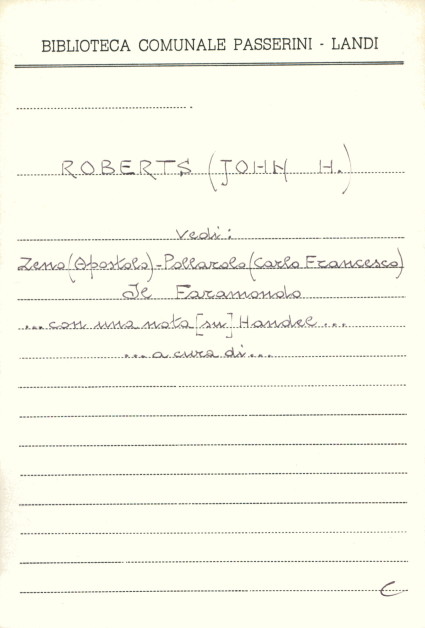 BIBLIOTECA COMUNALE PASSERINI - LANDI
ROBERTS (JOHN H.)
vedi:
Zeno (Apostolo) - Pollarolo (Carlo Francesco)
Il Faramondo
... con una nota [su] Handel ...
... a cura di ...
C